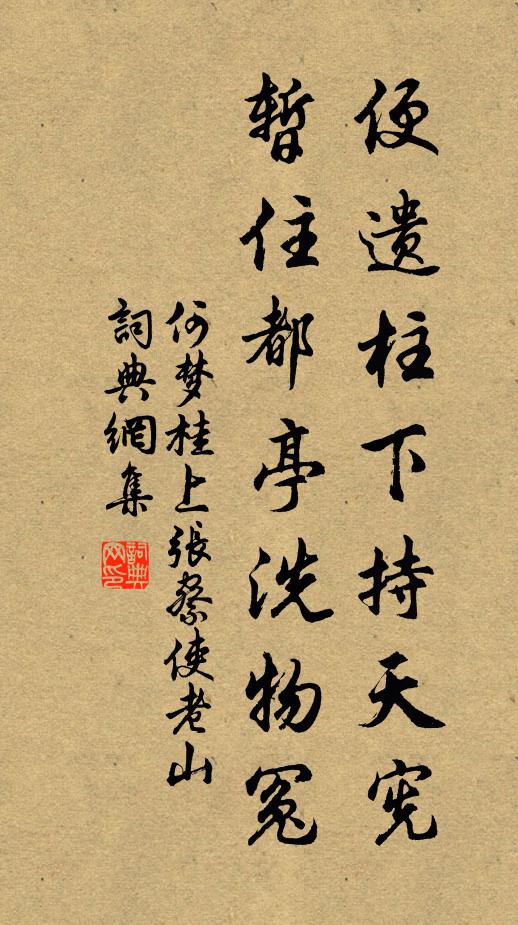 便遗柱下持天宪
暫住都亭洗物冤
何梦桂上張察使老山
詞典網集
詞典网印